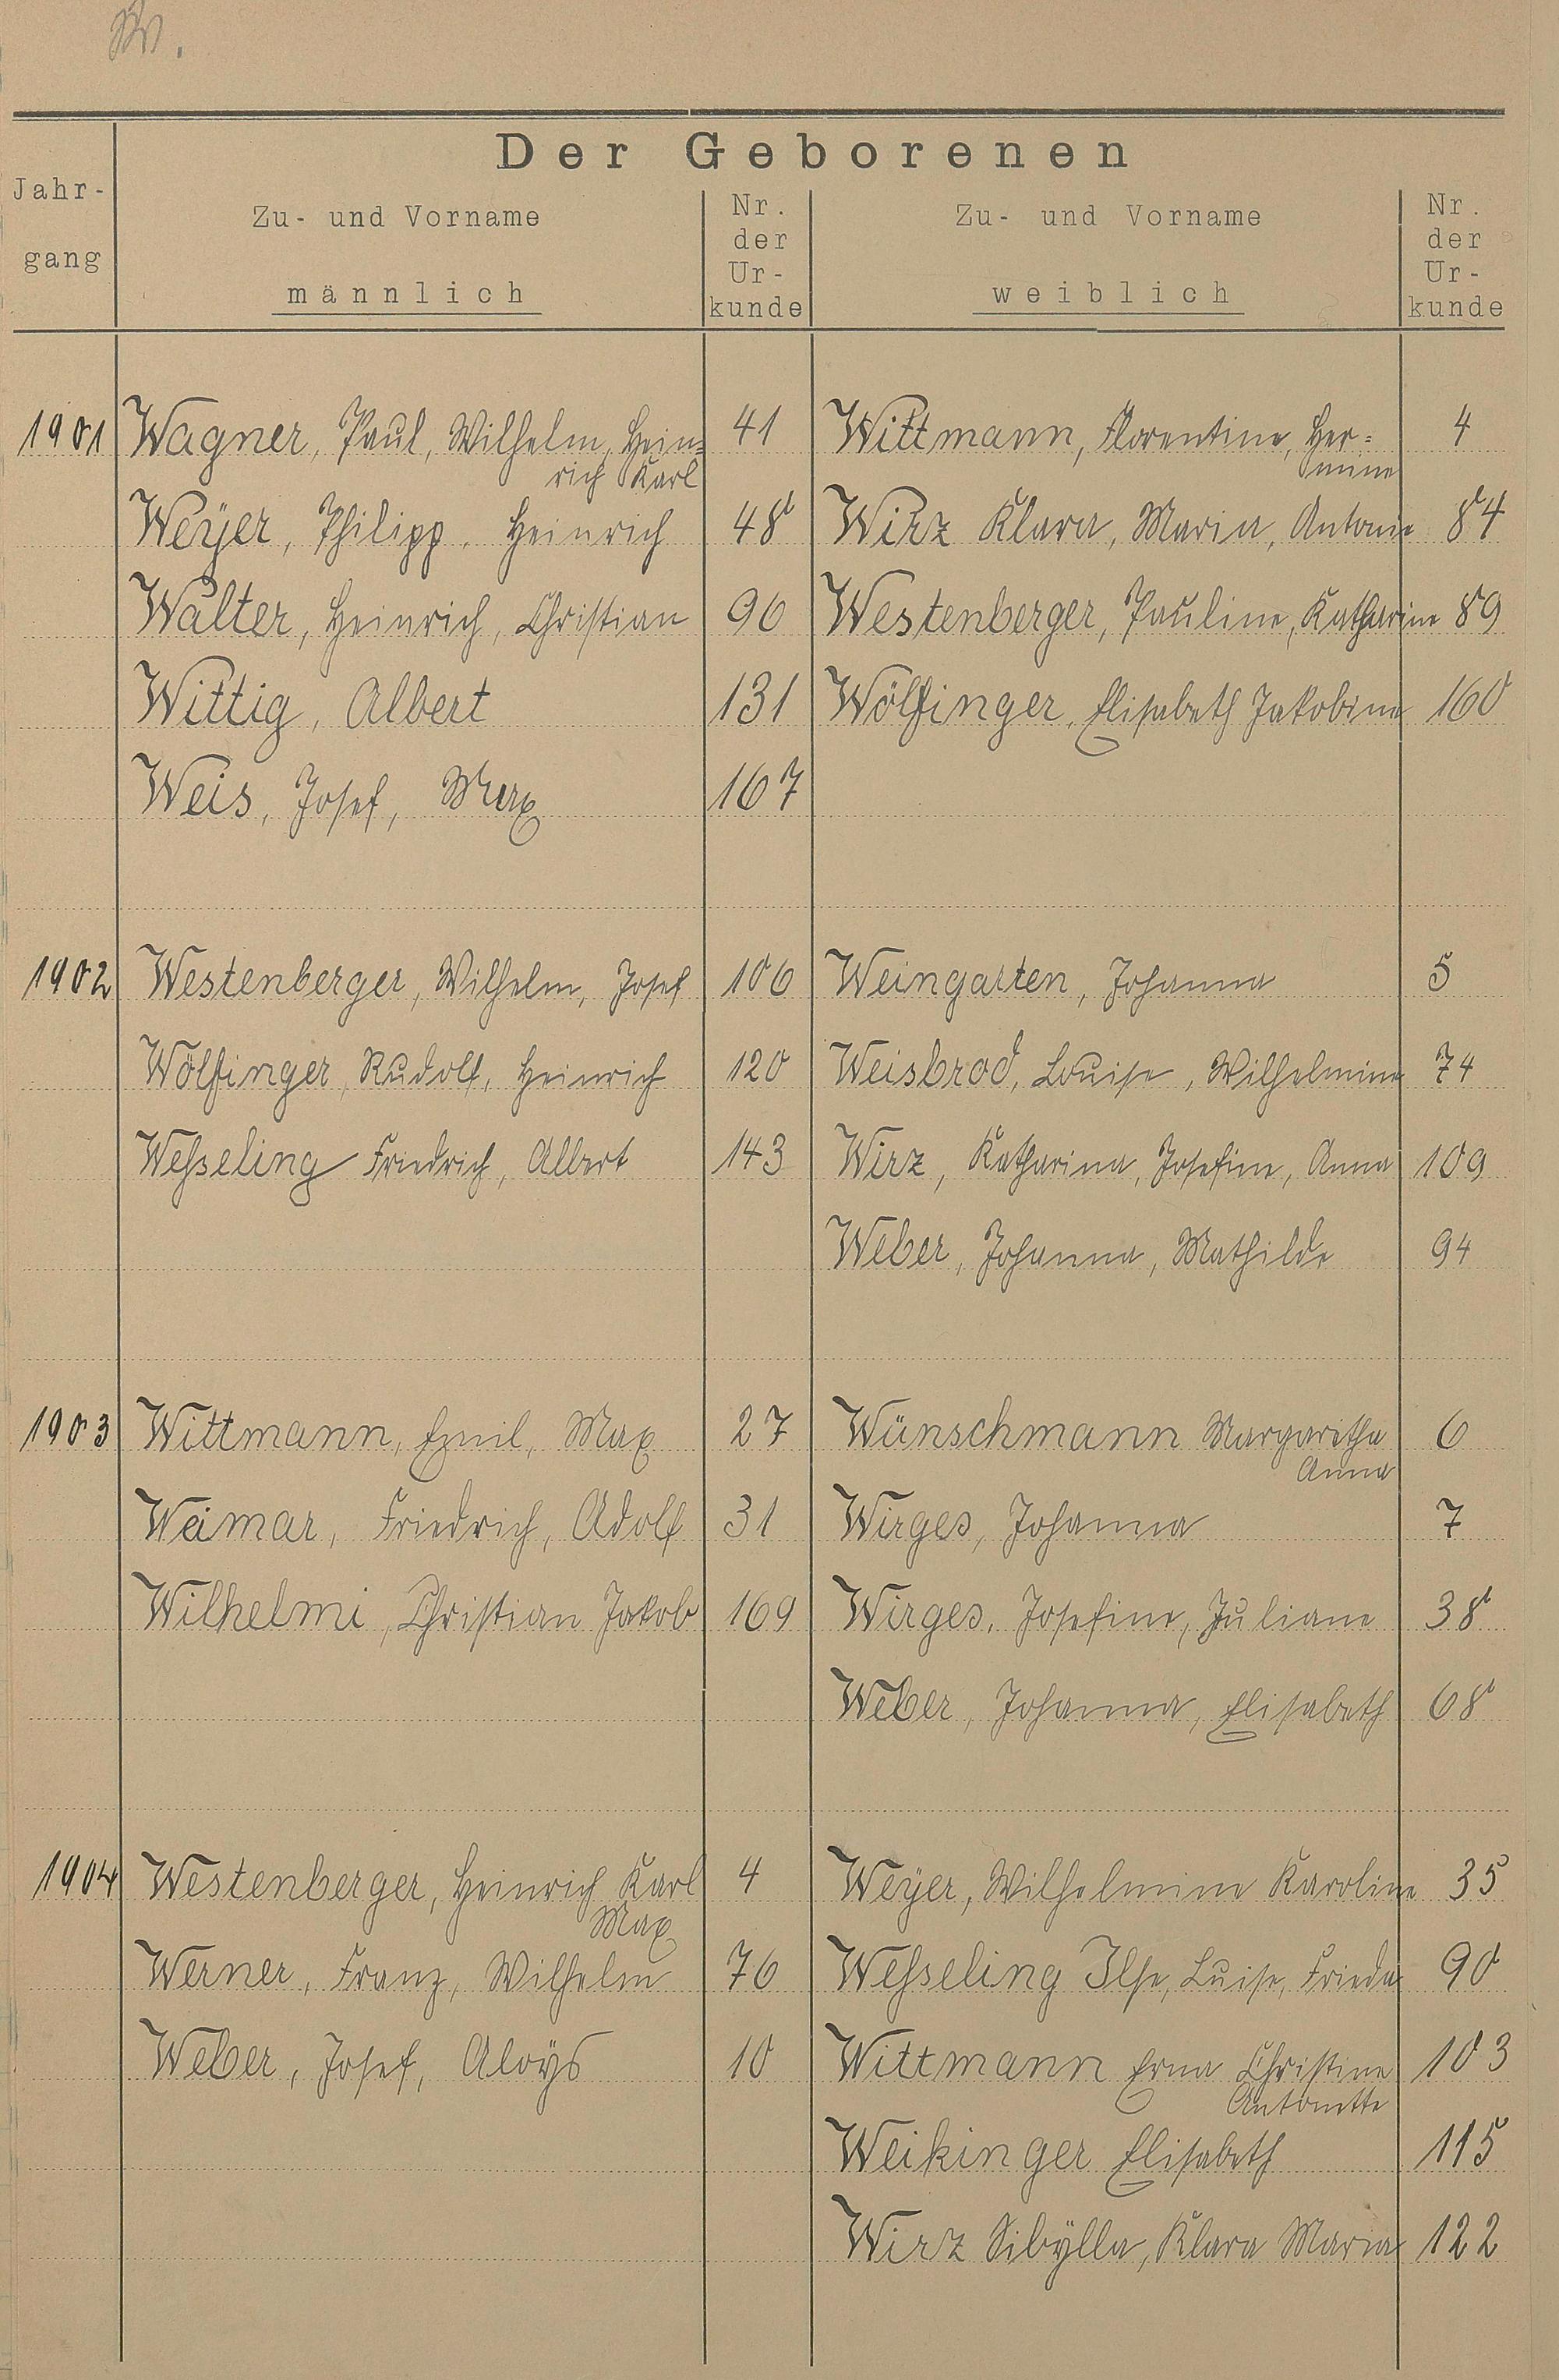 W.
Der Geborenen
Jahr-
gang
Zu- und Vorname
männlich
Nr.
der
Ur-
kunde
Zu- und Vorname
weiblich
Nr.
der
Ur-
kunde
1901 Wagner, Paul, Wilhelm, Hein= 41 Wittmann, Florentine, Her= 4
rich Karl mine
Weÿer, Philipp, Heinrich 48 Wirz Klara, Maria, Antonie 84
Walter, Heinrich, Christian 96 Westenberger, Pauline, Katharine 89
Wittig, Albert 131 Wölfinger, Elisabeth Jakobine 160
Weis, Josef, Max 167
1902 Westenberger, Wilhelm, Josef 106 Weingarten, Johanna 5
Wölfinger, Rudolf, Heinrich 120 Weisbrod, Louise, Wilhelmine 74
Weßseling Friedrich, Albert 143 Wirz, Katharina, Josefine, Anna 109
Weber, Johanna, Mathilde 94
1903 Wittmann, Emil, Max 27 Wünschmann Margaretha 6
Anna
Weimar, Friedrich, Adolf 31 Wirges, Johanna 7
Wilhelmi, Christian Jakob 169 Wirges, Josefine, Juliane 38
Weber, Johanna, Elisabeth 68
1904 Westenberger, Heinrich Karl 4 Weÿer, Wilhelmine Karoline 35
Max
Werner, Franz, Wilhelm 76 Weßseling Ilse, Luise, Frieda 90
Weber, Josef, Aloÿs 10 Wittmann Erna Christine 103
Antonette
Weikinger Elisabeth 115
Wirz Sibÿlla, Klara Maria 122